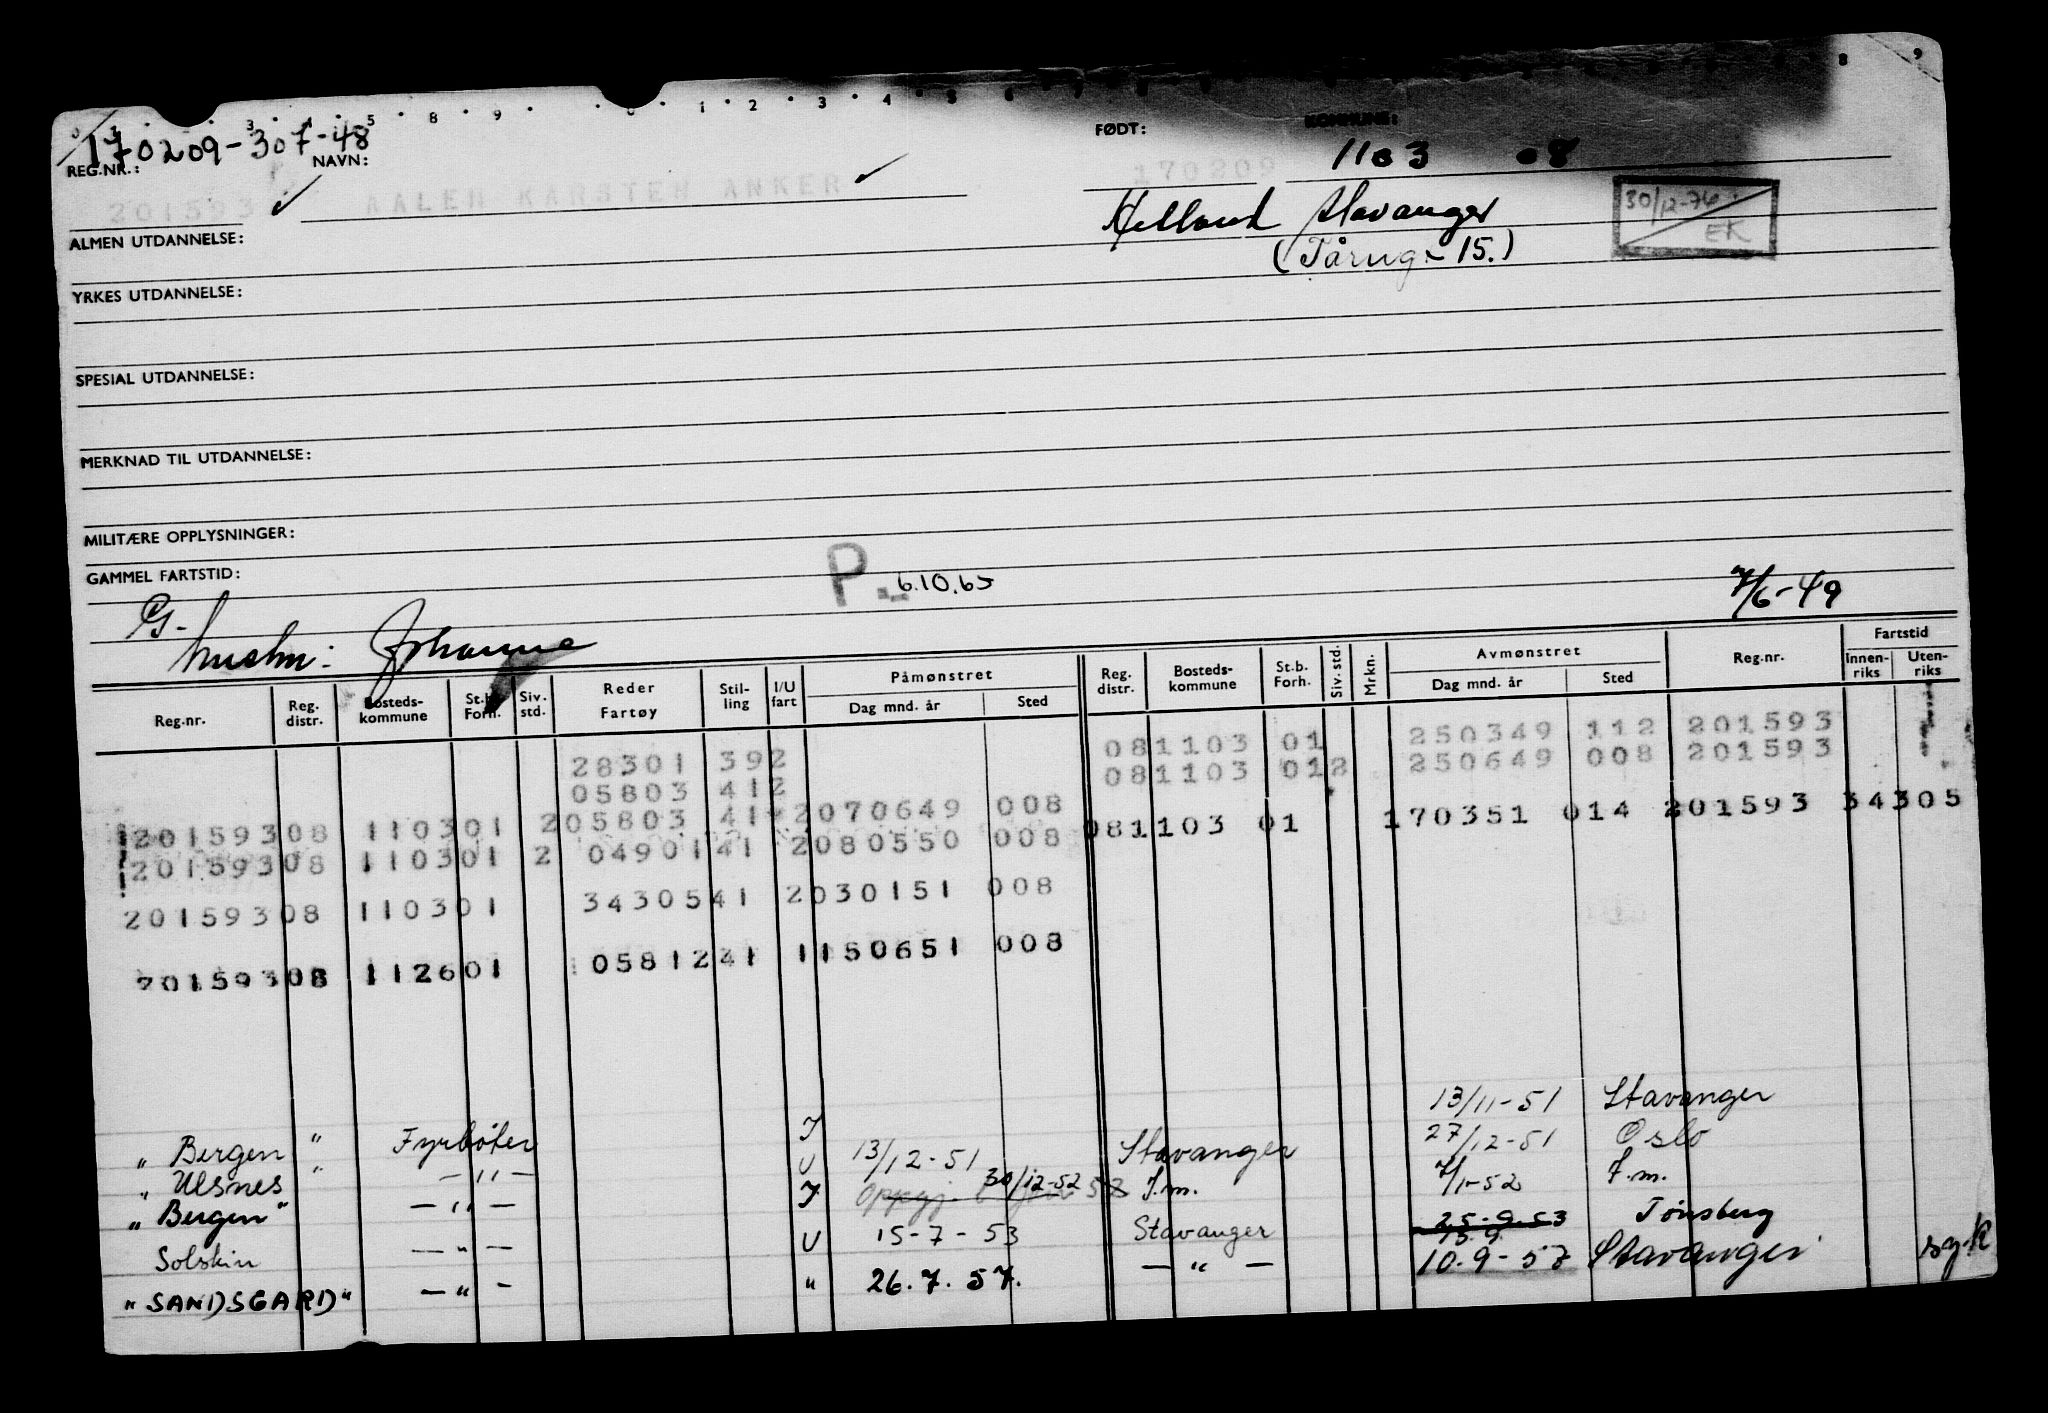 170209-307-48
REG.NR.: NAVN: FØDT: KOMMUNE:
201593 AALEN KARSTEN ANKER 170209 1103 08
Helland Stavanger
(Tårng- 15.)
30/12-76
EK
ALMEN UTDANNELSE:
YRKES UTDANNELSE:
SPESIAL UTDANNELSE:
MERKNAD TIL UTDANNELSE:
MILITÆRE OPPLYSNINGER:
GAMMEL FARTSTID:
P. 6.10.65
7/6-49
G.
hustru: Johanne
Reg.nr. Reg. distr. Bosteds-kommune St.b. Forh. Siv. std. Reder Fartøy Stil-ling I/U fart Påmønstret Dag mnd. år Sted Reg. distr. Bosteds-kommune St.b. Forh. Siv. std. Mrkn. Avmønstret Dag mnd. år Sted Reg.nr. Fartstid Innen-riks Uten-riks
28301 392 081103 01 250349 112 201593
05803 412 081103 012 250649 008 201593
20159308 110301 205803 41 2070649 008 081103 01 170351 014 201593 34305
20159308 110301 2 0490141 2080550 008
20159308 110301 3430541 2030151 008
20159308 112601 0581241 1150651 008
13/11-51 Stavanger
" Bergen " Fyrbøter I 13/12-51 Stavanger 27/12-51 Oslo
" Ulsnes " — " — U 30/12-52 F.m. 7/1-52 F.m.
" Bergen " — " — I Oppgj.
Solskin — " — U 15-7-53 Stavanger 25.9.53 Tønsberg
15.9.
"SANDSGARD" — " — " 26.7.57. — " — 10.9-57 Stavanger syk